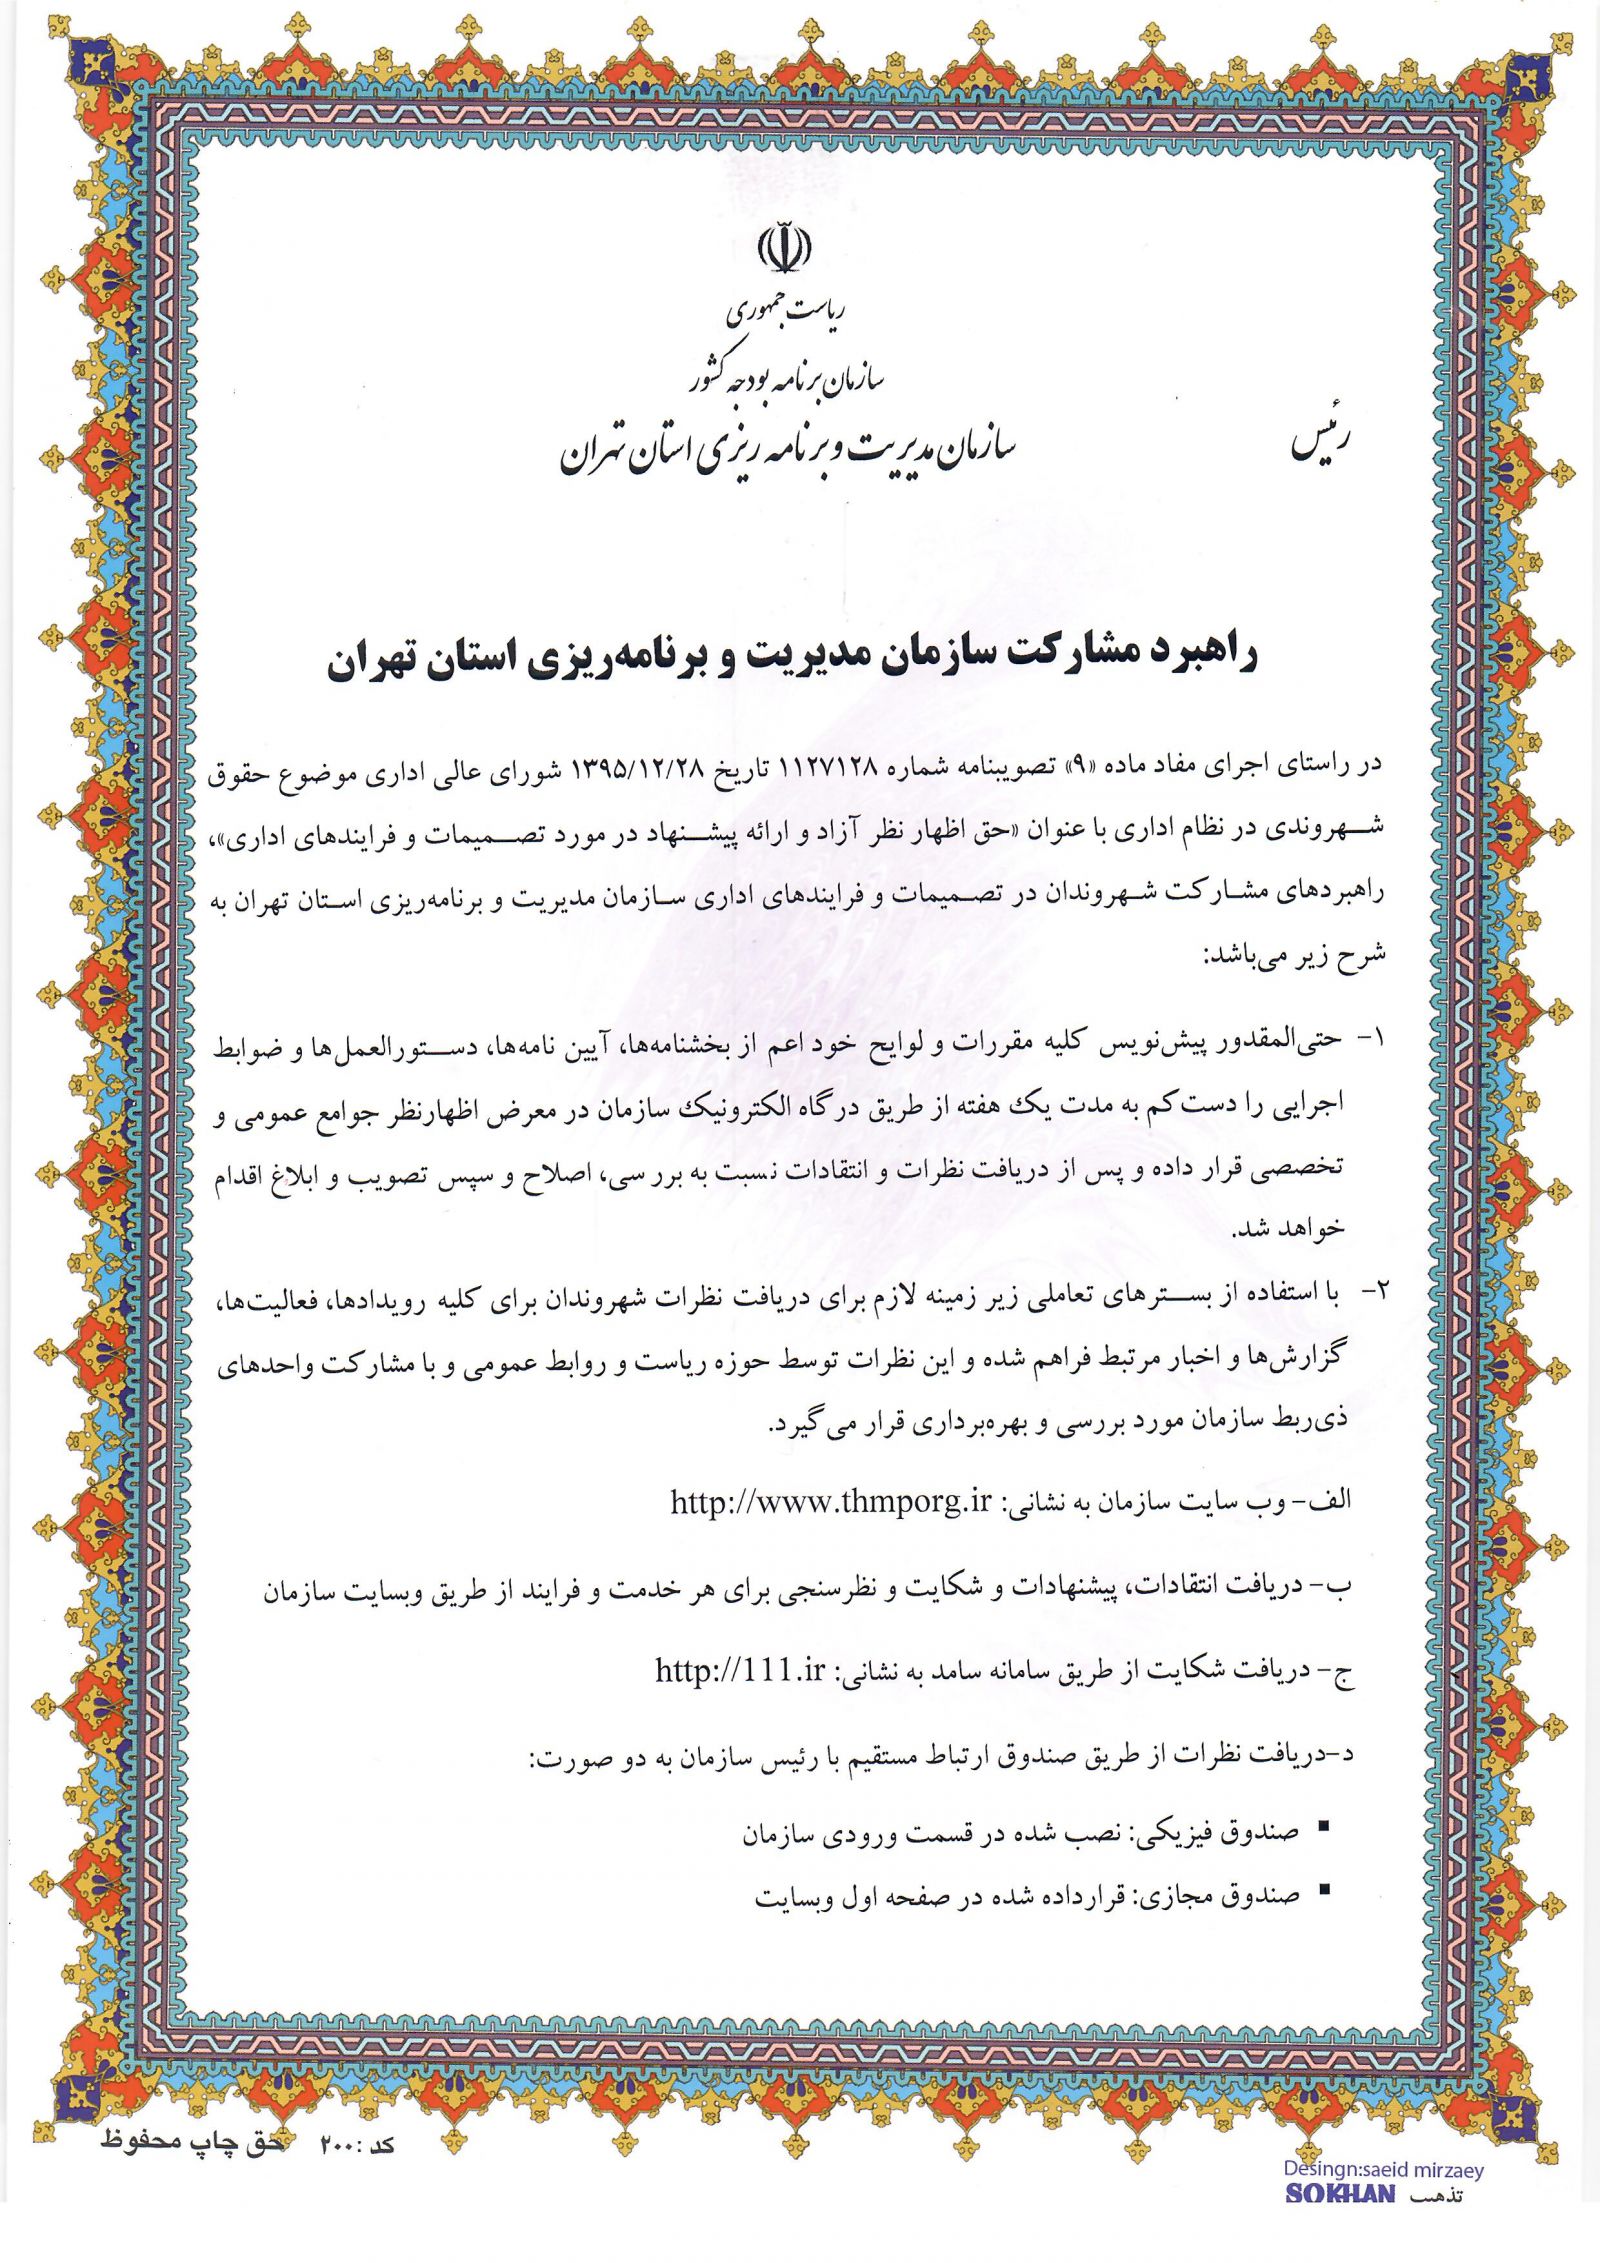 ریاست جمهوری
سازمان برنامه بودجه کشور
سازمان مدیریت و برنامه ریزی استان تهران
رئیس
راهبرد مشارکت سازمان مدیریت و برنامه‌ریزی استان تهران
در راستای اجرای مفاد ماده «۹» تصویبنامه شماره ۱۱۲۷۱۲۸ تاریخ ۱۳۹۵/۱۲/۲۸ شورای عالی اداری موضوع حقوق
شهروندی در نظام اداری با عنوان «حق اظهار نظر آزاد و ارائه پیشنهاد در مورد تصمیمات و فرایندهای اداری»،
راهبردهای مشارکت شهروندان در تصمیمات و فرایندهای اداری سازمان مدیریت و برنامه‌ریزی استان تهران به
شرح زیر می‌باشد:
۱- حتی‌المقدور پیش‌نویس کلیه مقررات و لوایح خود اعم از بخشنامه‌ها، آیین نامه‌ها، دستورالعمل‌ها و ضوابط
اجرایی را دست‌کم به مدت یک هفته از طریق درگاه الکترونیک سازمان در معرض اظهارنظر جوامع عمومی و
تخصصی قرار داده و پس از دریافت نظرات و انتقادات نسبت به بررسی، اصلاح و سپس تصویب و ابلاغ اقدام
خواهد شد.
۲- با استفاده از بسترهای تعاملی زیر زمینه لازم برای دریافت نظرات شهروندان برای کلیه رویدادها، فعالیت‌ها،
گزارش‌ها و اخبار مرتبط فراهم شده و این نظرات توسط حوزه ریاست و روابط عمومی و با مشارکت واحدهای
ذی‌ربط سازمان مورد بررسی و بهره‌برداری قرار می‌گیرد.
الف- وب سایت سازمان به نشانی: http://www.thmporg.ir
ب- دریافت انتقادات، پیشنهادات و شکایت و نظرسنجی برای هر خدمت و فرایند از طریق وبسایت سازمان
ج- دریافت شکایت از طریق سامانه سامد به نشانی: http://111.ir
د-دریافت نظرات از طریق صندوق ارتباط مستقیم با رئیس سازمان به دو صورت:
▪ صندوق فیزیکی: نصب شده در قسمت ورودی سازمان
▪ صندوق مجازی: قرارداده شده در صفحه اول وبسایت
کد :۲۰۰ حق چاپ محفوظ
Desingn:saeid mirzaey
تذهیب SOKHAN